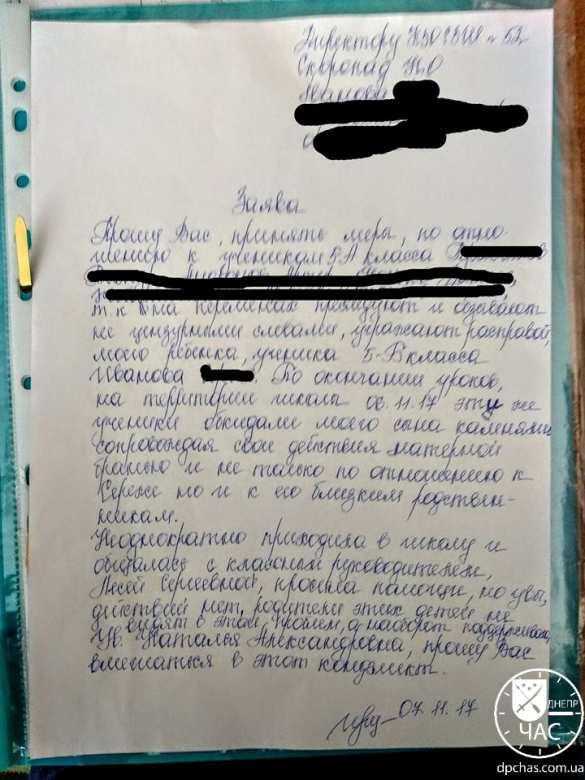 Директору КЗО СЗШ № 52
Скоропад Н.О
Иванова
Заява
Прошу Вас, принять меры, по отно-
шению к ученикам 5-А класса
т.к на переменах преследуют и обзывают
не цензурными словами, угражают расправой,
моего ребёнка, ученика 5-В класса
Иванова По окончании уроков,
на территории школы 06.11.17 эти же
ученики обкидали моего сына камнями
сопровождая свои действия матерной
бранью и не только по отношению к
Серёже но и к его близким родствен-
никам.
Неоднократно приходила в школу и
общалась с классным руководителем,
Лесей Сергеевной, просила помощи, но увы,
действий нет, родители этих детей не
видят в этом проблем, а наоборот поддерживают,
Ув. Наталья Александровна, прошу Вас
вмешаться в этот конфликт.
07.11.17
ДНЕПР
ЧАС
dpchas.com.ua